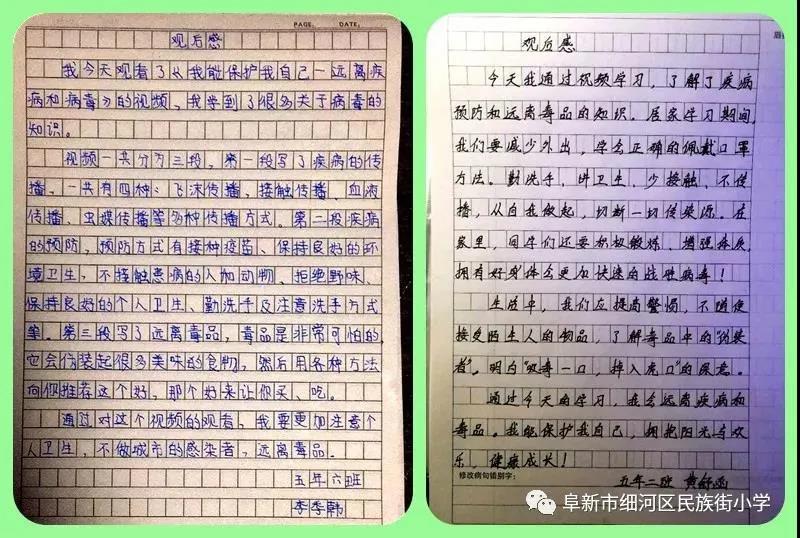 PAGE: DATE:
观后感
我今天观看了《我能保护我自己—远离疾
病和病毒》的视频,我学到了很多关于病毒的
知识。
视频一共分为三段,第一段写了疾病的传
播,一共有四种:飞沫传播,接触传播、血液
传播、虫媒传播等多种传播方式。第二段疾病
的预防,预防方式有接种疫苗、保持良好的环
境卫生,不接触患病的人和动物、拒绝野味、
保持良好的个人卫生、勤洗手及注意洗手方式
等。第三段写了远离毒品,毒品是非常可怕的,
它会伪装起很多美味的食物,然后用各种方法
向你推荐这个好,那个好来让你买、吃。
通过对这个视频的观看,我要更加注意个
人卫生,不做城市的感染者,远离毒品。
五年六班
李季韩
观后感
今天我通过视频学习,了解了疾病
预防和远离毒品的知识。居家学习期间,
我们要减少外出,学会正确的佩戴口罩
方法。勤洗手,讲卫生,少接触、不传
播,从自我做起,切断一切传染源。在
家里,同学们还要积极锻炼、增强体质,
拥有好身体会更加快速的战胜病毒!
生活中,我们应提高警惕,不随便
接受陌生人的物品,了解毒品中的“伪装
者”。明白“吸毒一口,掉入虎口”的寓意。
通过今天的学习,我会远离疾病和
毒品。我能保护我自己,拥抱阳光与欢
乐,健康成长!
修改病句错别字:
五年二班 黄舒函
阜新市细河区民族街小学